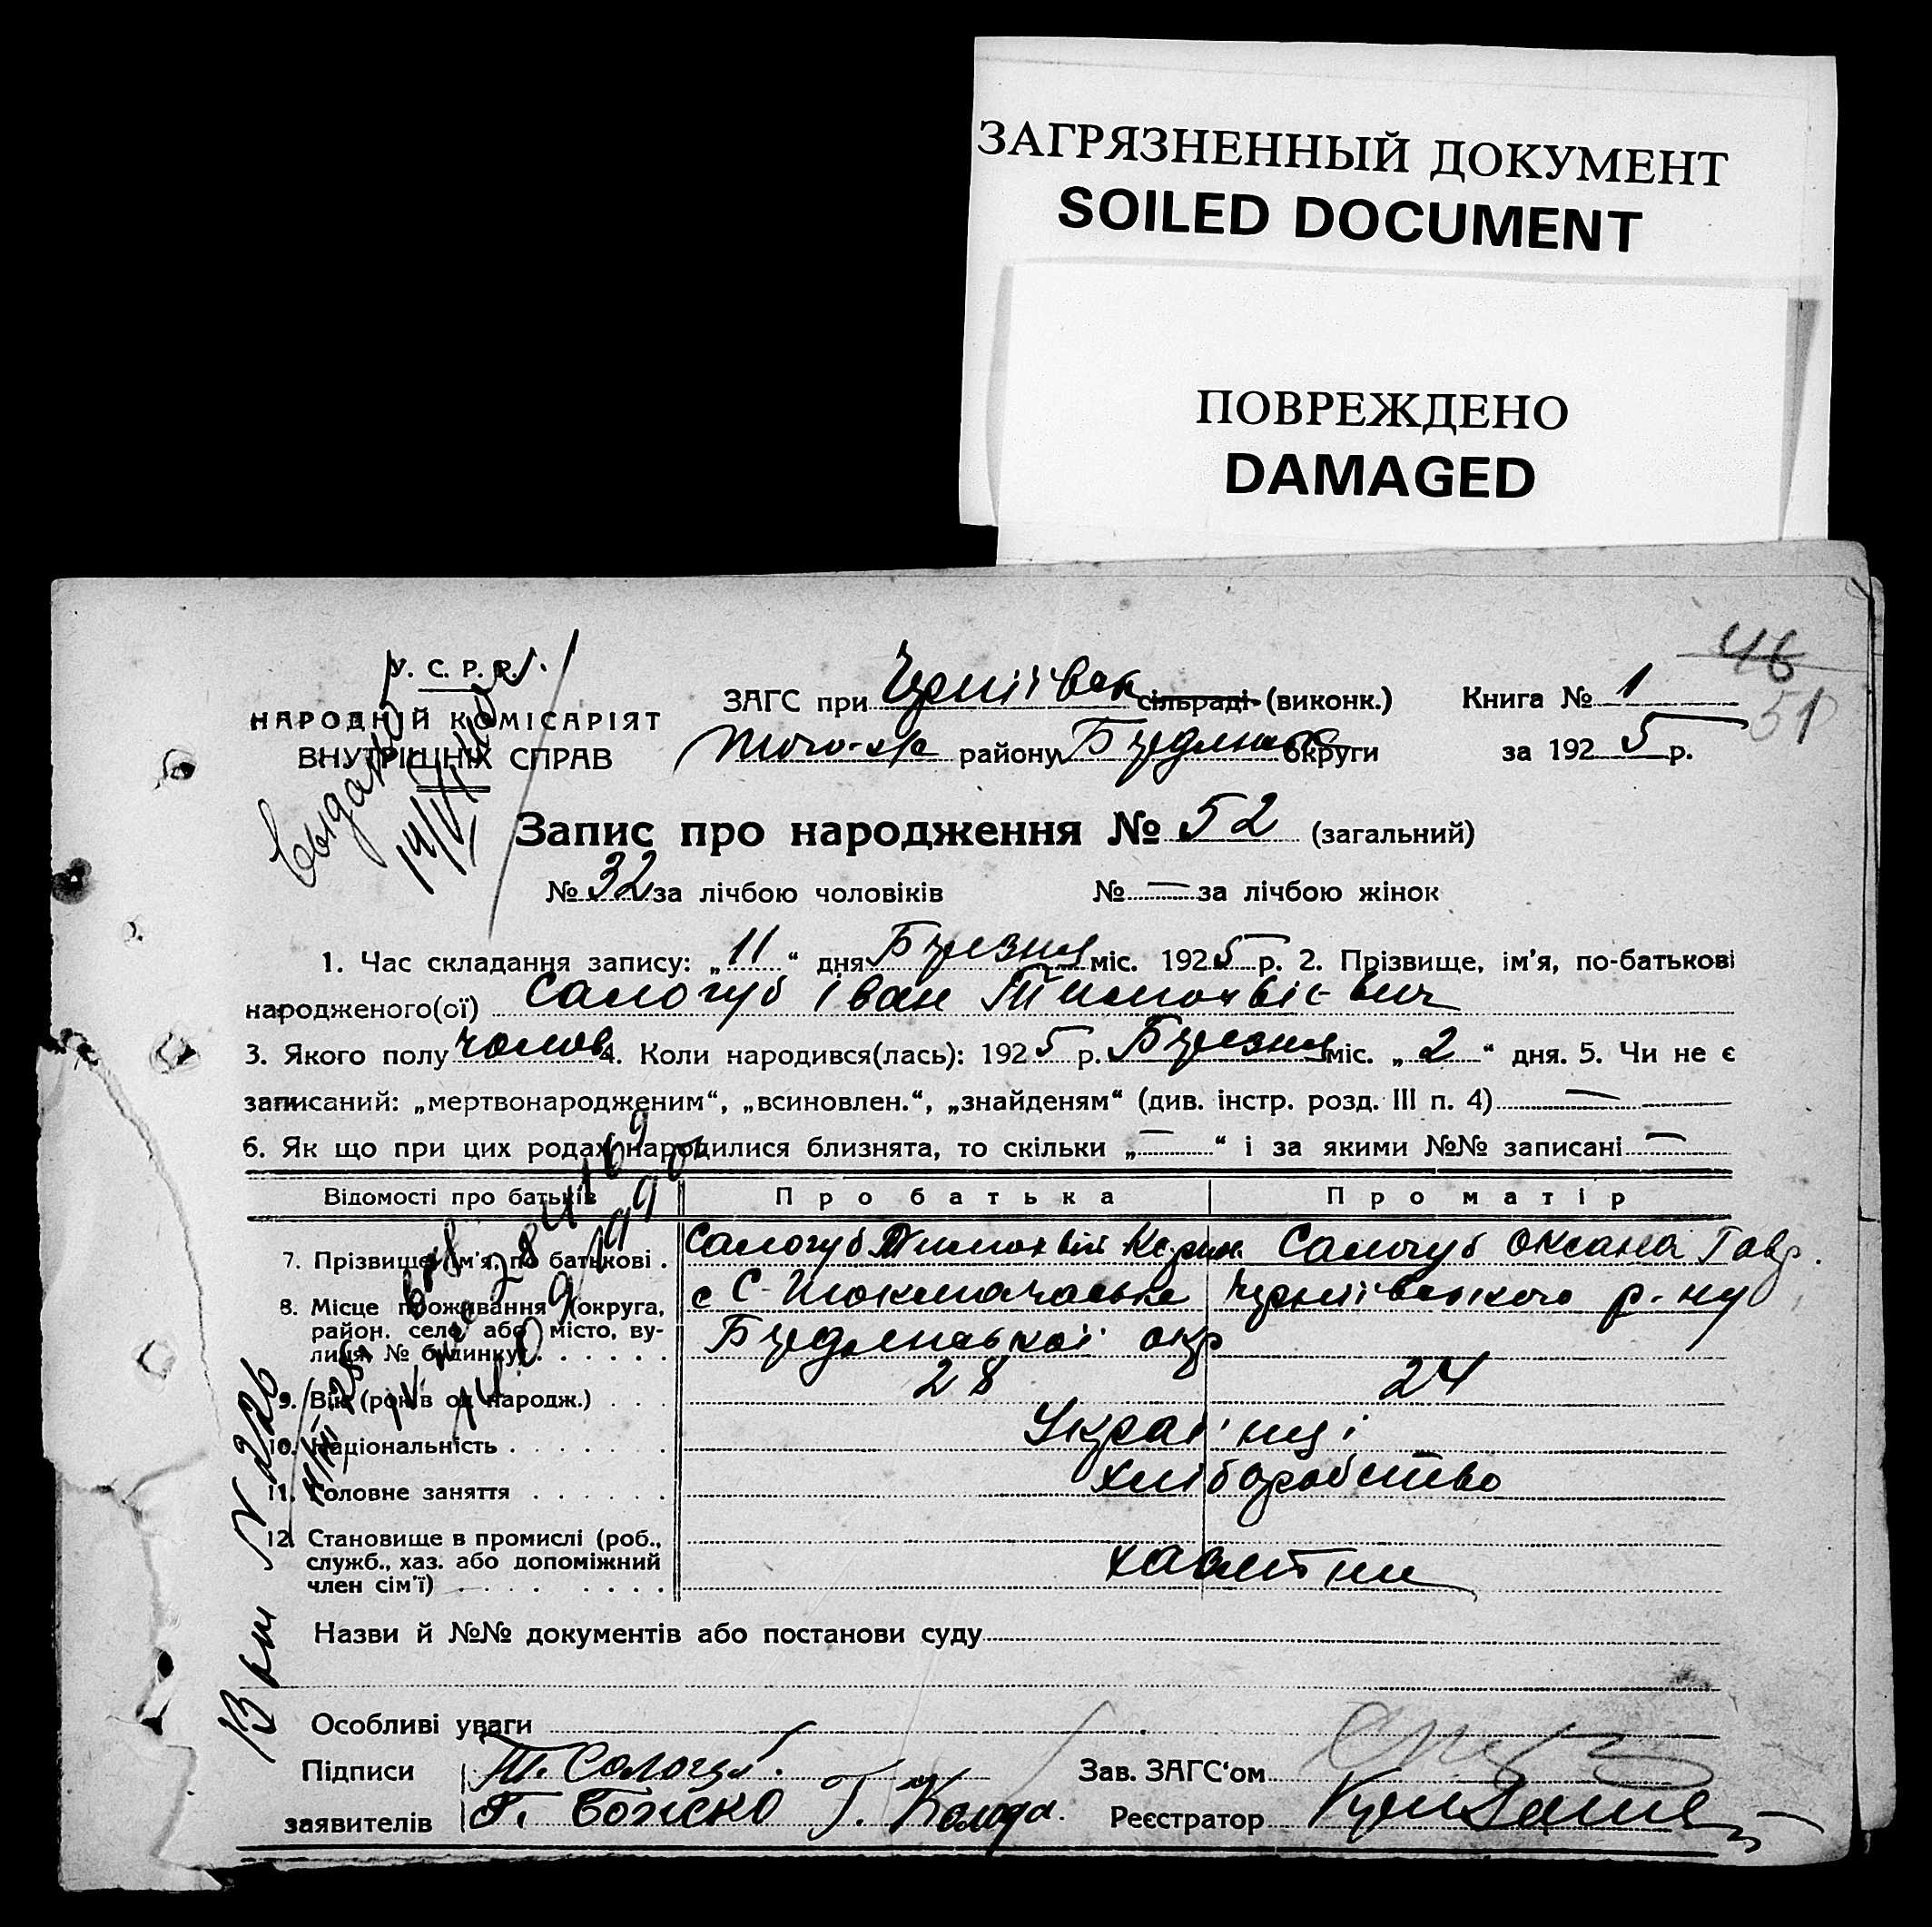 ЗАГРЯЗНЕННЫЙ ДОКУМЕНТ
SOILED DOCUMENT
ПОВРЕЖДЕНО
DAMAGED
46
51
У. С. Р. Р.
НАРОДНІЙ КОМІСАРІЯТ
ВНУТРІШНІХ СПРАВ
ЗАГС при сільраді (виконк.) Книга № 1
району округи за 1925 р.
Запис про народження № 52 (загальний)
№ 32 за лічбою чоловіків № — за лічбою жінок
1. Час складання запису: „11“ дня Березня міс. 1925 р. 2. Прізвище, ім'я, по-батькові
народженого(ої) Салогуб Іван Тимохвієвич
3. Якого полу чолов 4. Коли народився(лась): 1925 р. Березня міс. „2“ дня. 5. Чи не є
записаний: „мертвонародженим“, „всиновлен.“, „знайденям“ (див. інстр. розд. III п. 4) —
6. Як що при цих родах народилися близнята, то скільки „—“ і за якими №№ записані —
Відомості про батьків Про батька Про матір
7. Прізвище, ім'я, по батькові . Салогуб Тимохвій Салогуб Оксана Гавр.
8. Місце проживання (округа, с С-Токмачська р-ну
район, село або місто, ву-
лиця, № будинку) . . . . . окр
9. Вік (років од народж.) . . . 28 24
10. Національність . . . . . . Українці
11. Головне заняття . . . . . . хліборобство
12. Становище в промислі (роб.,
служб., хаз. або допоміжний
член сім'ї) . . . . . . .
Назви й №№ документів або постанови суду
Особливі уваги
Підписи Т. Сологуб. Зав. ЗАГС'ом
заявителів Г. Божко Г. Колода. Реєстратор